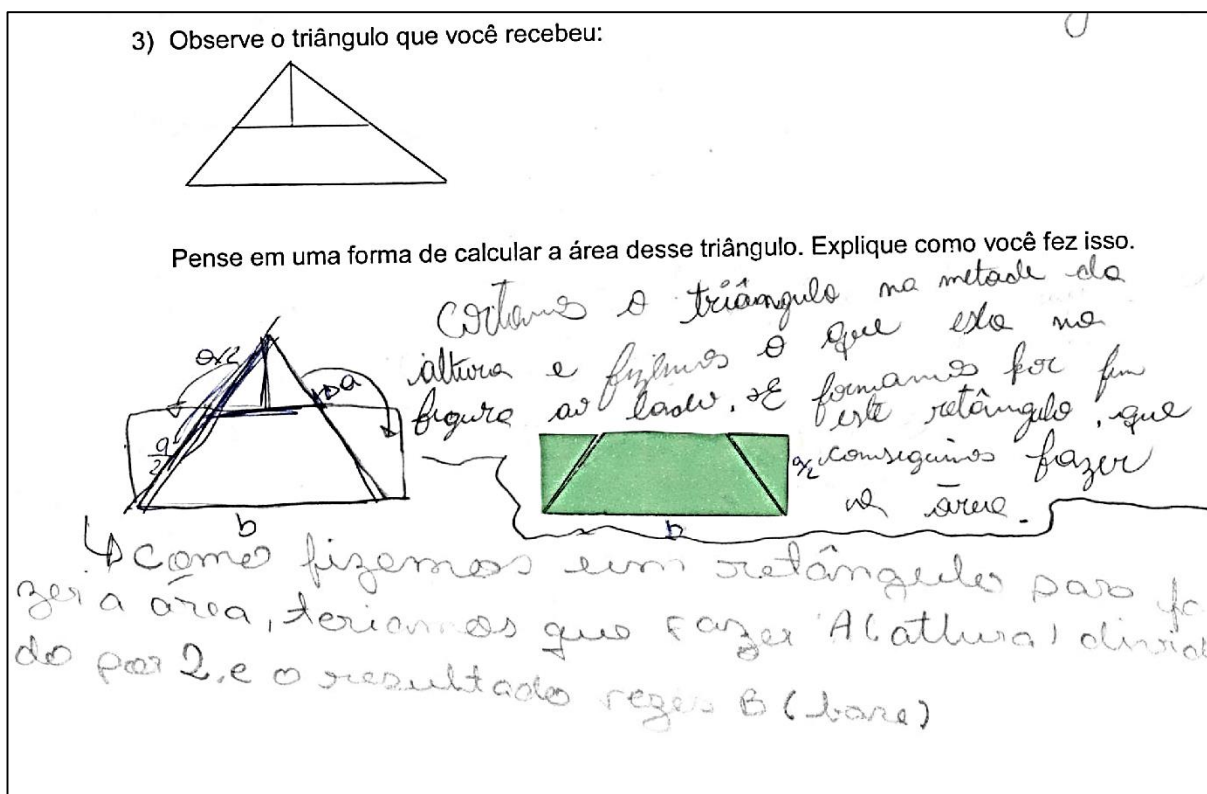 3) Observe o triângulo que você recebeu:
Pense em uma forma de calcular a área desse triângulo. Explique como você fez isso.
cortamos o triângulo na metade da
altura e fizemos o que esta na
figura ao lado. E formamos por fim
este retângulo, que
conseguimos fazer
a área.
a/2
a
a/2
b
a/2
b
Como fizemos um retângulo para fa
zer a área, teriamos que fazer A (altura) divid
do por 2, e o resultado vezes B (base)